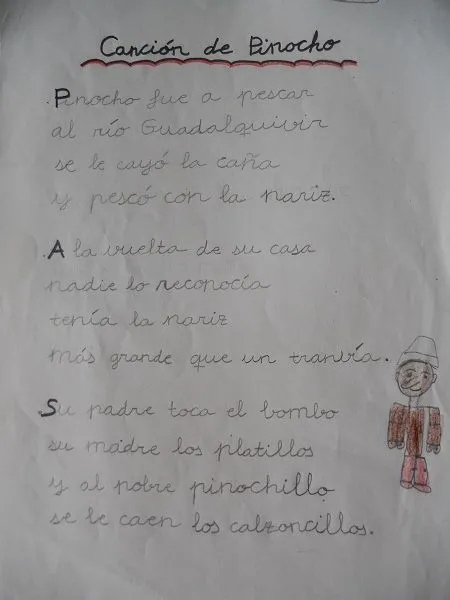 Canción de Pinocho
Pinocho fue a pescar
al río Guadalquivir
se le cayó la caña
y pescó con la nariz.
A la vuelta de su casa
nadie lo reconocía
tenía la nariz
más grande que un tranvía.
Su padre toca el bombo
su madre los platillos
y al pobre pinochillo
se le caen los calzoncillos.